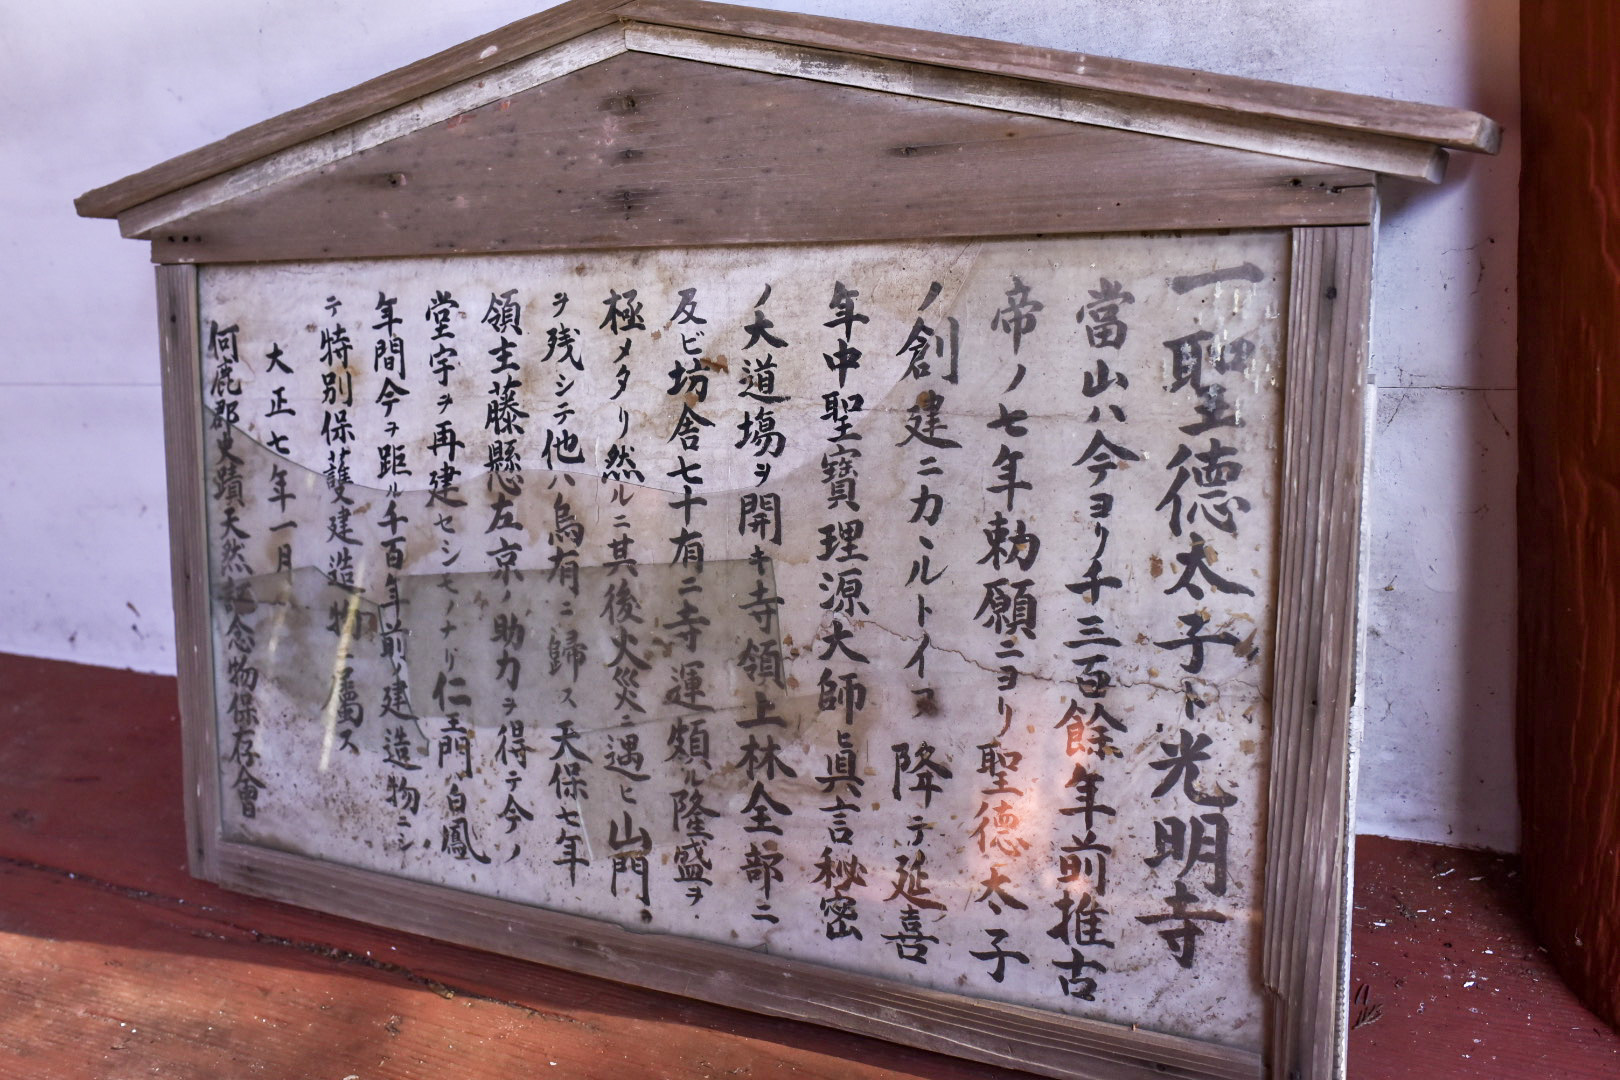 一聖德太子ト光明寺
當山ハ今ヨリ千三百餘年前推古
帝ノ七年勅願ニヨリ聖德太子
ノ創建ニカヽルトイフ 降テ延喜
年中聖寶理源大師ヒ眞言秘密
ノ大道塲ヲ開キ寺領上林全部ニ
及ビ坊舎七十有ニ寺運頗ル隆盛ヲ
極メタリ然ルニ其後火災ニ遇ヒ山門
ヲ残シテ他ハ烏有ニ歸ス天保七年
領主藤懸左京ノ助力ヲ得テ今ノ
堂宇ヲ再建セシモノナリ仁王門ハ白鳳
年間今ヲ距ル千百年前ノ建造物ニシ
テ特別保護建造物ニ屬ス
大正七年一月
何鹿郡史蹟天然記念物保存會